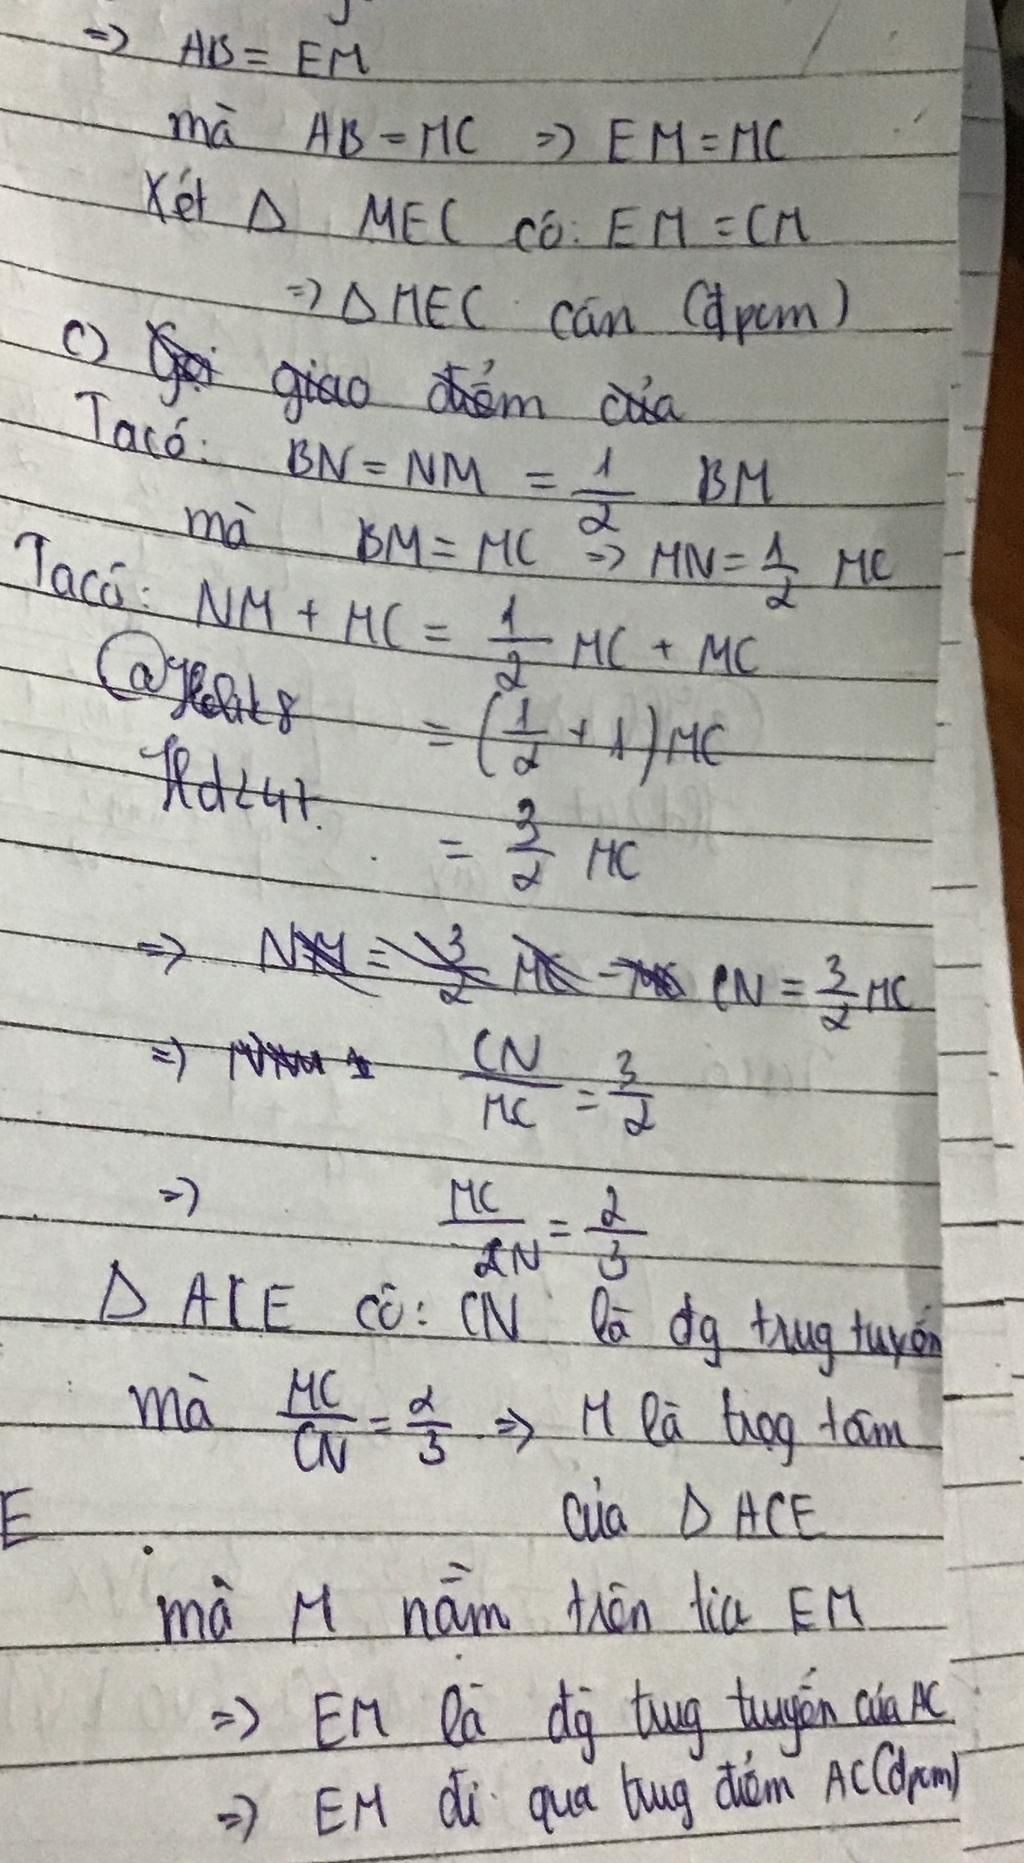 => AB = EM
mà AB = MC => EM = MC
Xét Δ MEC có: EM = CM
=> Δ MEC cân (đpcm)
c) Gọi giao điểm của
Ta có: BN = NM = 1/2 BM
mà BM = MC => MN = 1/2 MC
Ta có: NM + MC = 1/2 MC + MC
= (1/2 + 1) MC
= 3/2 MC
=> CN = 3/2 MC
=> CN/MC = 3/2
=> MC/CN = 2/3
Δ ACE có: CN là đg trug tuyến
mà MC/CN = 2/3 => M là trọg tâm
E của Δ ACE
mà M nằm trên tia EM
=> EM là đg trug tuyến của AC
=> EM đi qua trug điểm AC (đpcm)